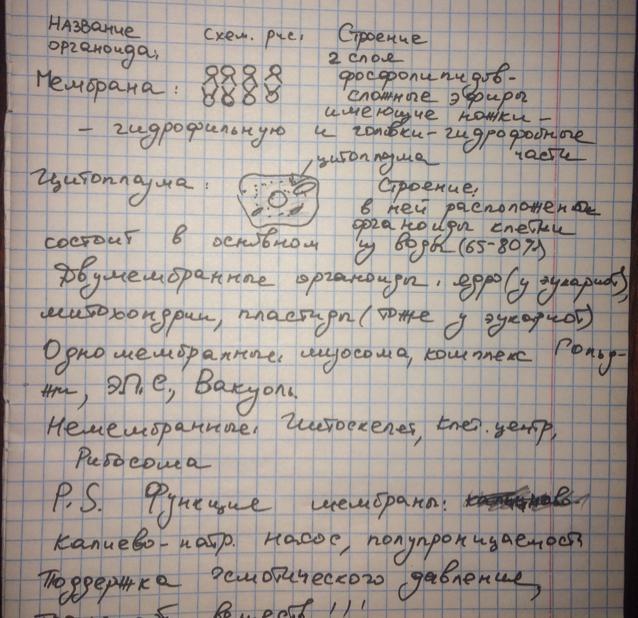 Название схем. рис. Строение
органоида,
2 слоя
Мембрана: фосфолипидов-
сложные эфиры
имеющие ножки -
- гидрофильную и головки-гидрофобные
части
цитоплазма
Цитоплазма: Строение:
в ней расположены
органоиды клетки
состоит в основном из воды (65-80%)
Двумембранные органоиды: ядро (у эукариот),
митохондрии, пластиды (тоже у эукариот)
Одномембранные: лизосома, комплекс Гольд-
жи, ЭПС, Вакуоль.
Немембранные: Цитоскелет, клет. центр,
Рибосома
P.S. Функции мембраны:
калиево-натр. насос, полупроницаемость
Поддержка осмотического давления,
веществ!!!